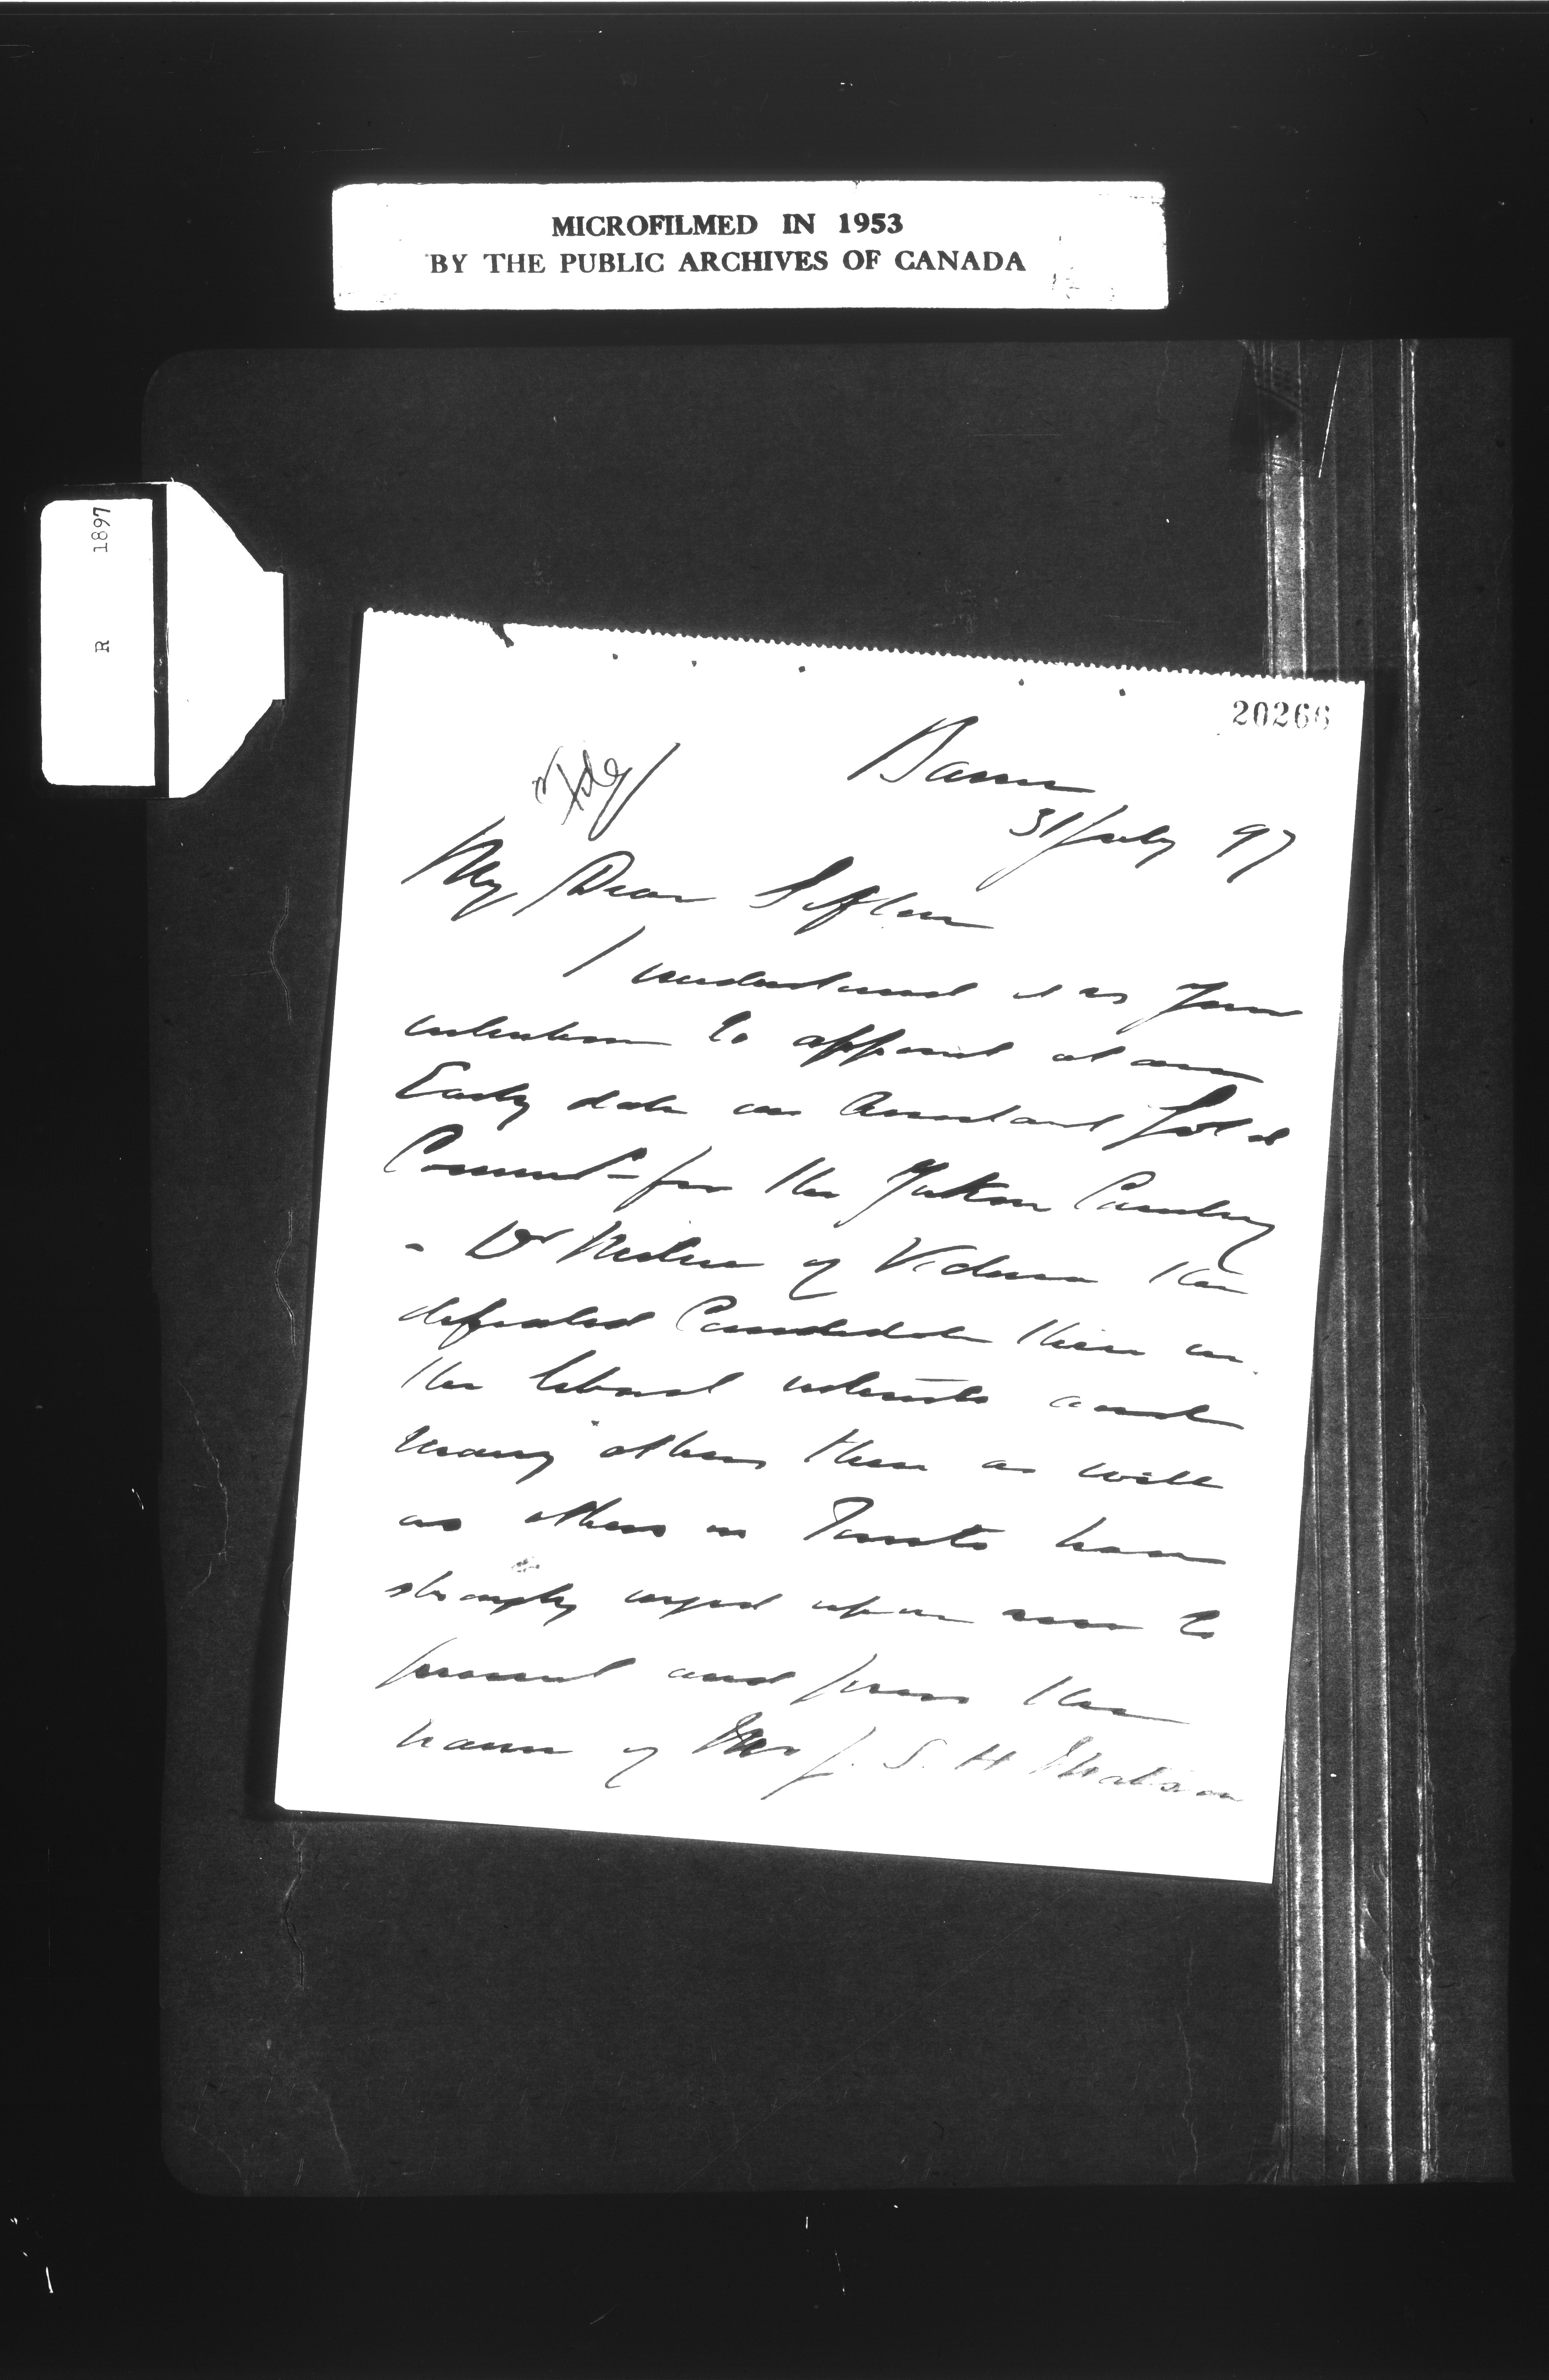 MICROFILMED IN 1953
BY THE PUBLIC ARCHIVES OF CANADA
R 1897
20266
31 July 97
My Dear Sifton
I understand it is your
intention to appoint at an
Early date an Assistant Gold
Commr for the Yukon Country
- Dr Milne of Victoria the
defeated Candidate there in
the liberal interests and
many others there as well
as others in Toronto have
strongly urged upon me to
present and press the
name of Mr J. S. H Matson